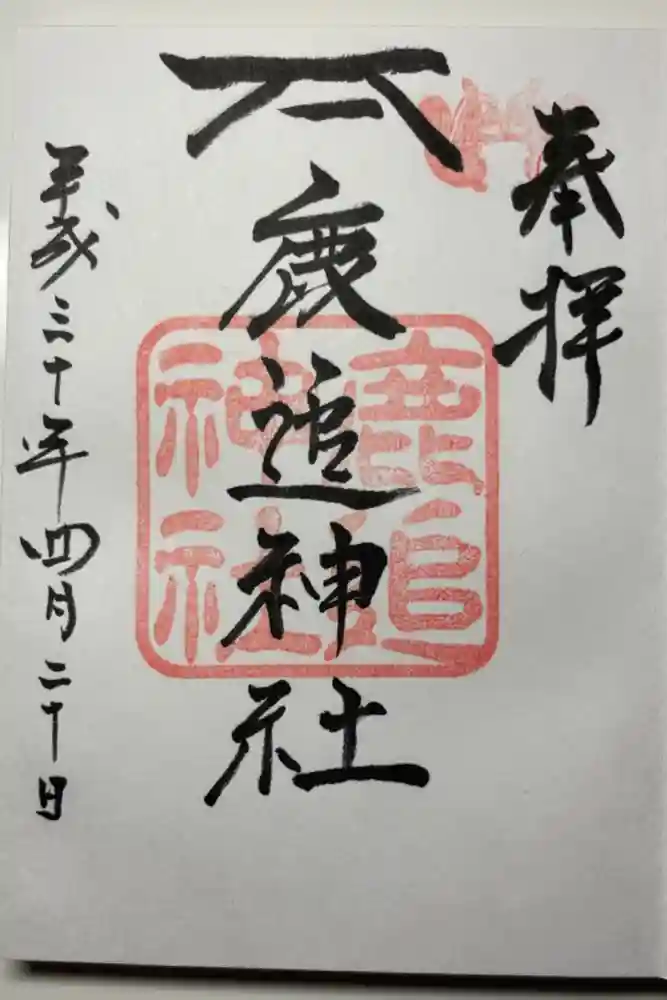 奉拝
鹿追神社
平成三十年四月二十日
鹿追
神社